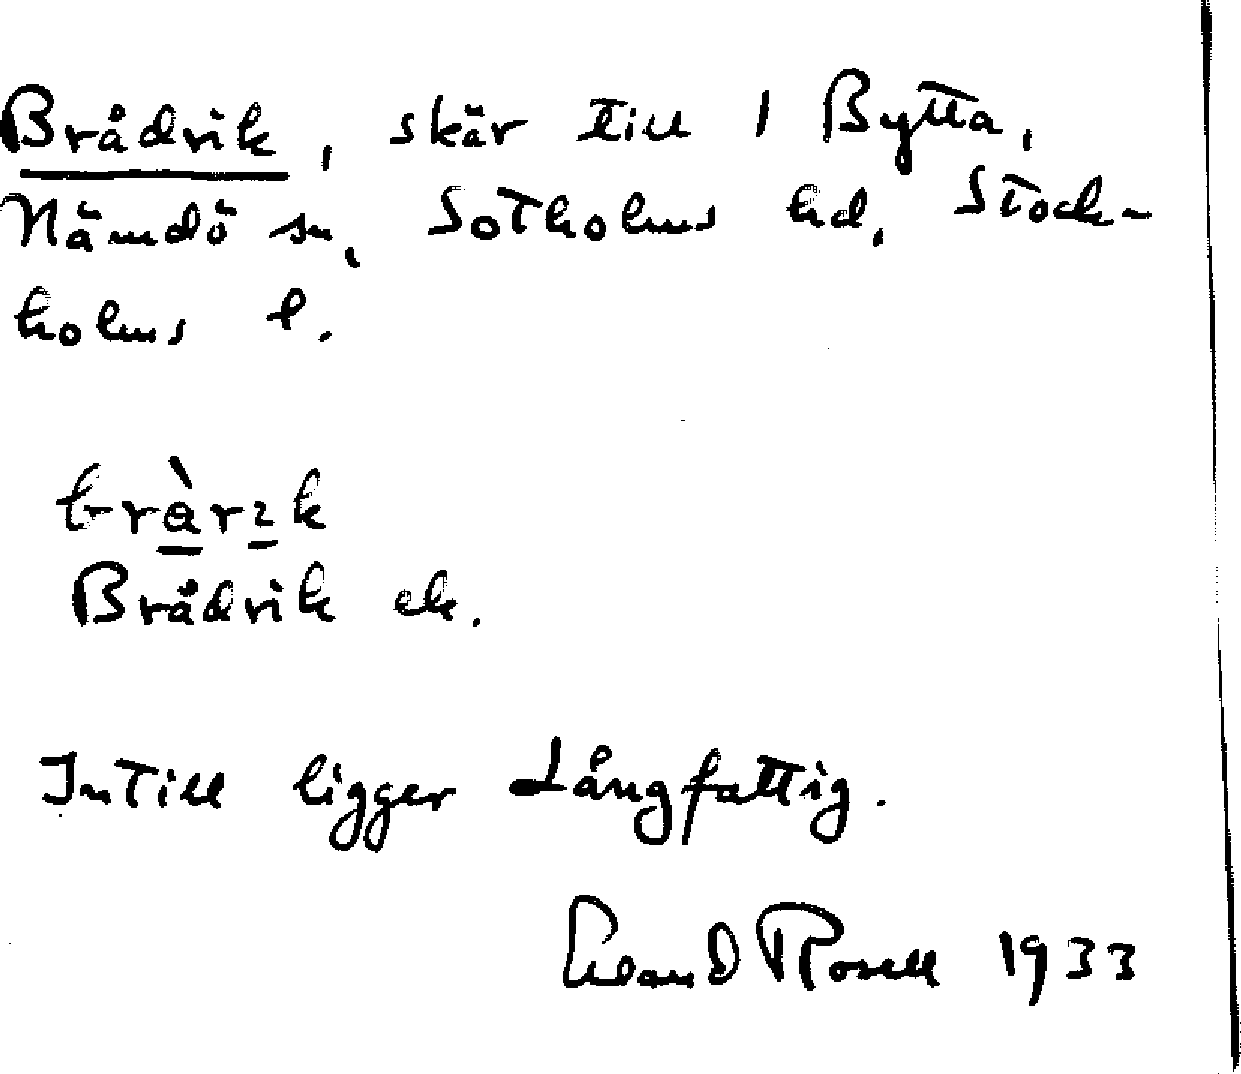 Brådvik, skär till 1 Bytta,
Nämdö sn, Sotholms hd, Stock-
holms l.
bràrık
Brådvik ek.
Intill ligger Långfattig.
Erland Rosell 1933